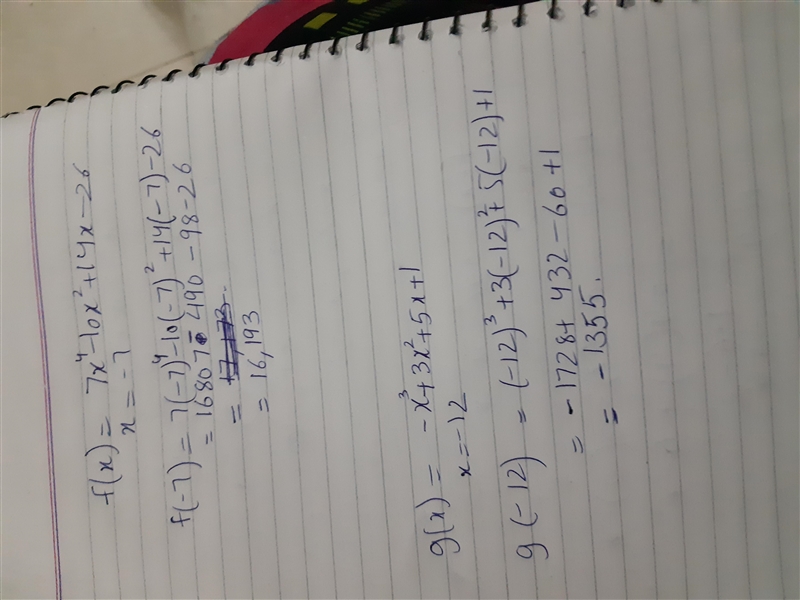 f(x) = 7x⁴-10x²+14x-26
x = -7
f(-7) = 7(-7)⁴-10(-7)²+14(-7)-26
= 16807-490-98-26
= 17,173.
= 16,193
g(x) = -x³+3x²+5x+1
x=-12
g(-12) = (-12)³+3(-12)²+5(-12)+1
= -1728+432-60+1
= -1355.